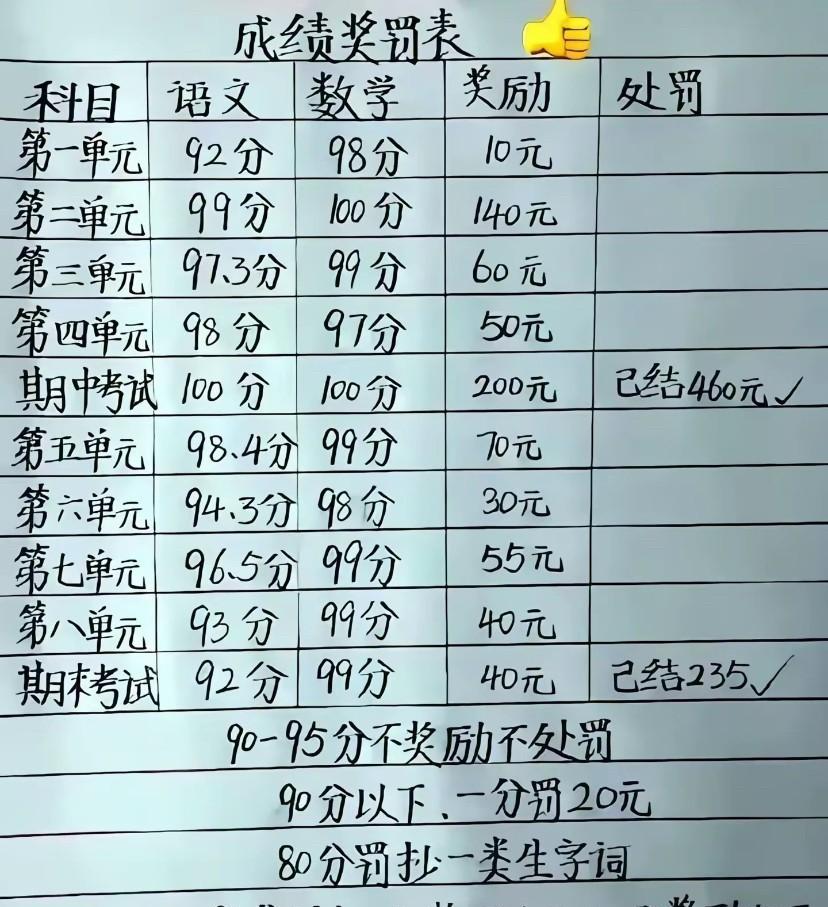 成绩奖罚表
科目 语文 数学 奖励 处罚
第一单元 92分 98分 10元
第二单元 99分 100分 140元
第三单元 97.3分 99分 60元
第四单元 98分 97分 50元
期中考试 100分 100分 200元 已结460元✓
第五单元 98.4分 99分 70元
第六单元 94.3分 98分 30元
第七单元 96.5分 99分 55元
第八单元 93分 99分 40元
期末考试 92分 99分 40元 已结235✓
90-95分不奖励不处罚
90分以下、一分罚20元
80分罚抄一类生字词